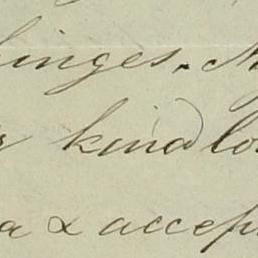 hinges. M
kind lo
a & accep